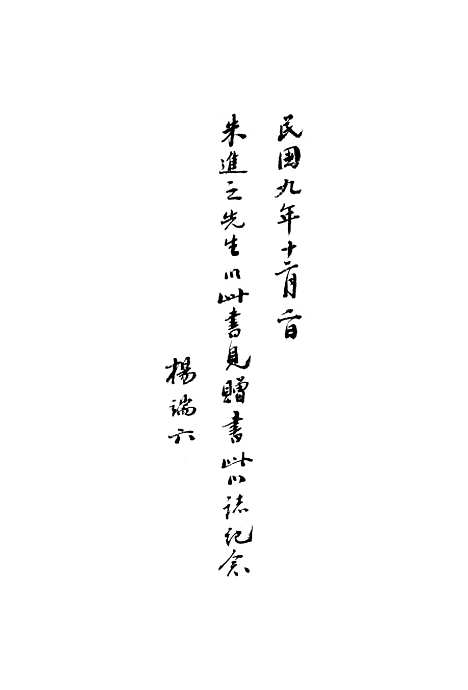 民国九年十二月二日
朱進之先生以此書見贈書此以誌紀念
楊端六